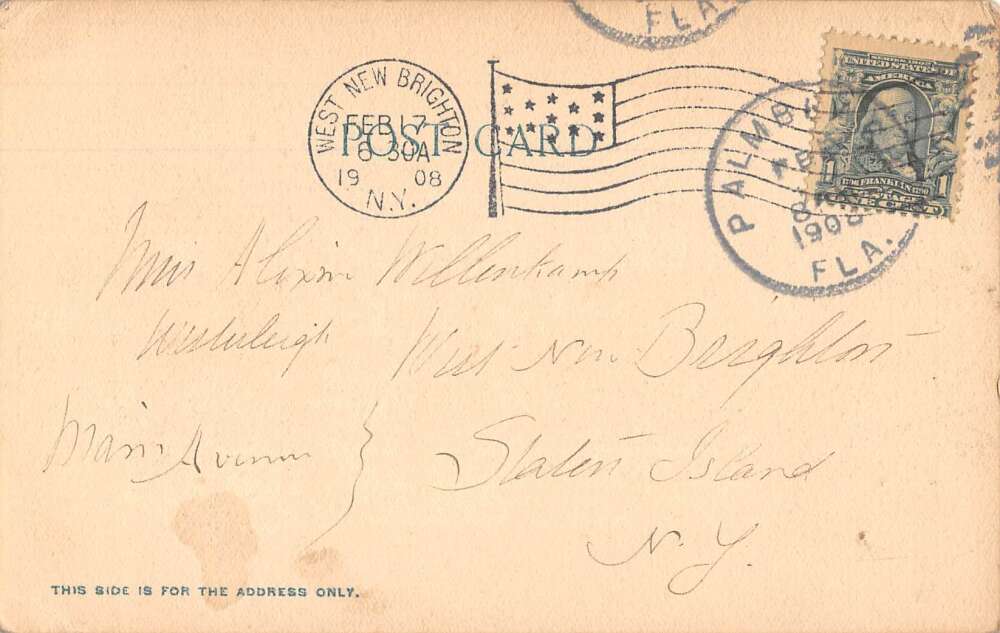 FLA.
WEST NEW BRIGHTON
FEB 17
6 30A
19 08
N.Y.
POST CARD
SERIES 1902
UNITED STATES OF
AMERICA
1 1
FRANKLIN
ONE CENT
PALM
FEB
8
1908
FLA.
Miss Willenkamp
Westerleigh West New Brighton
Avenue } Staten Island
N.Y.
THIS SIDE IS FOR THE ADDRESS ONLY.